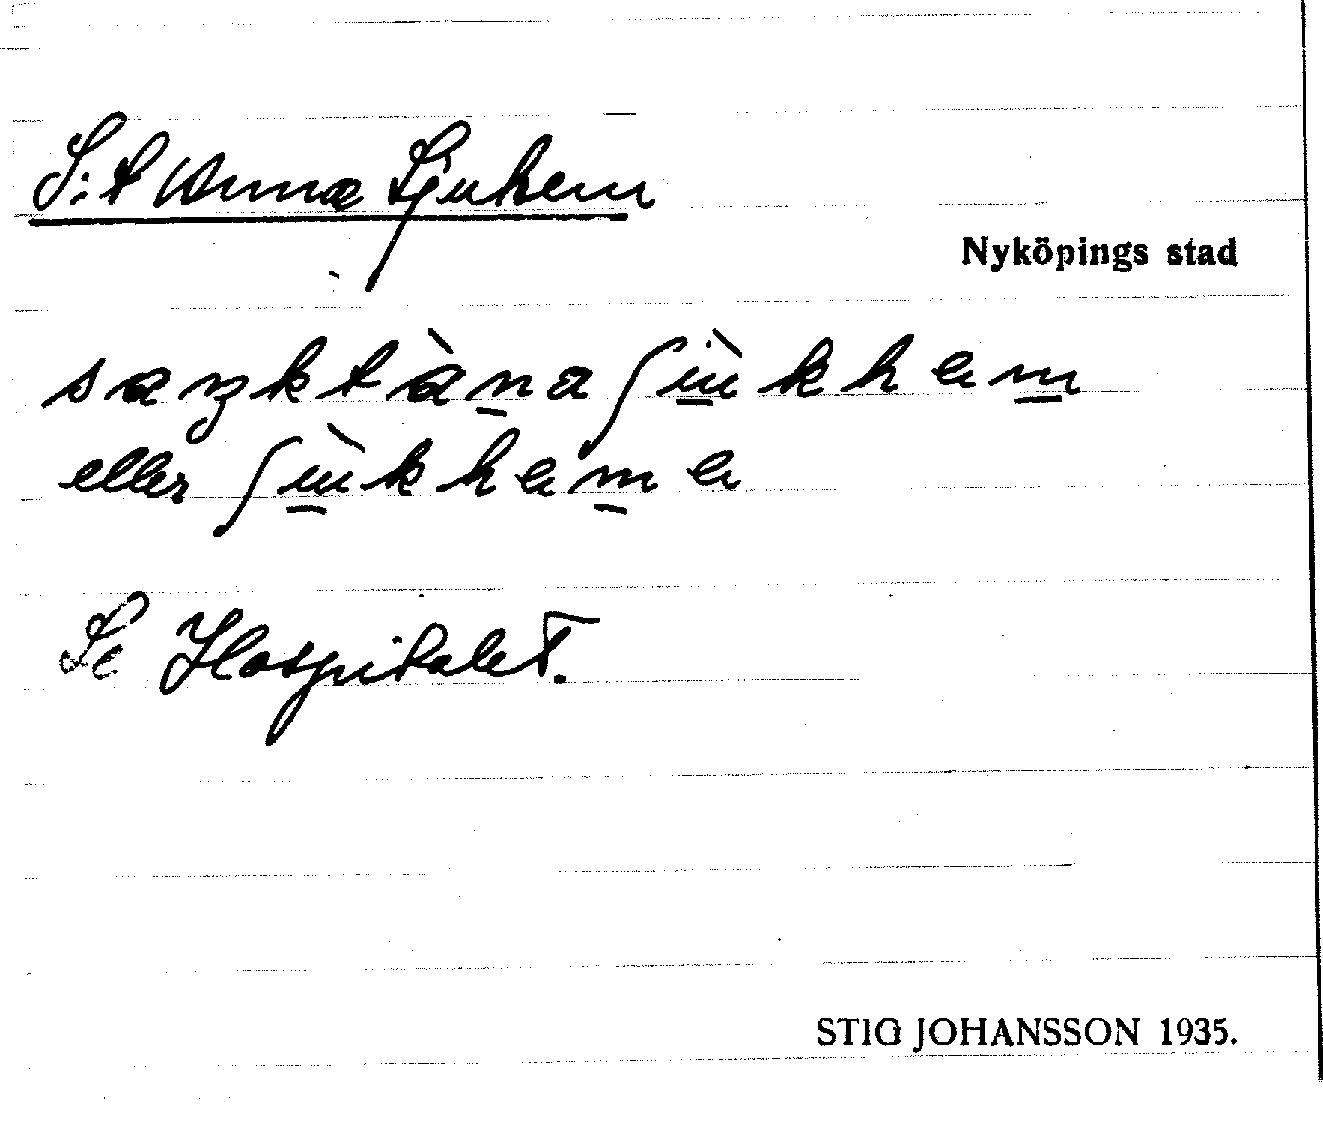 S:t Anna Sjukhem
Nyköpings stad
saŋktàna ʃùkhem
eller ʃùkheme
Se Hospitalet.
STIG JOHANSSON 1935.